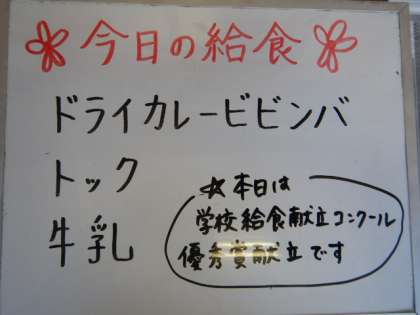 今日の給食
ドライカレービビンバ
トック
牛乳
☆本日は
学校給食献立コンクール
優秀賞献立です